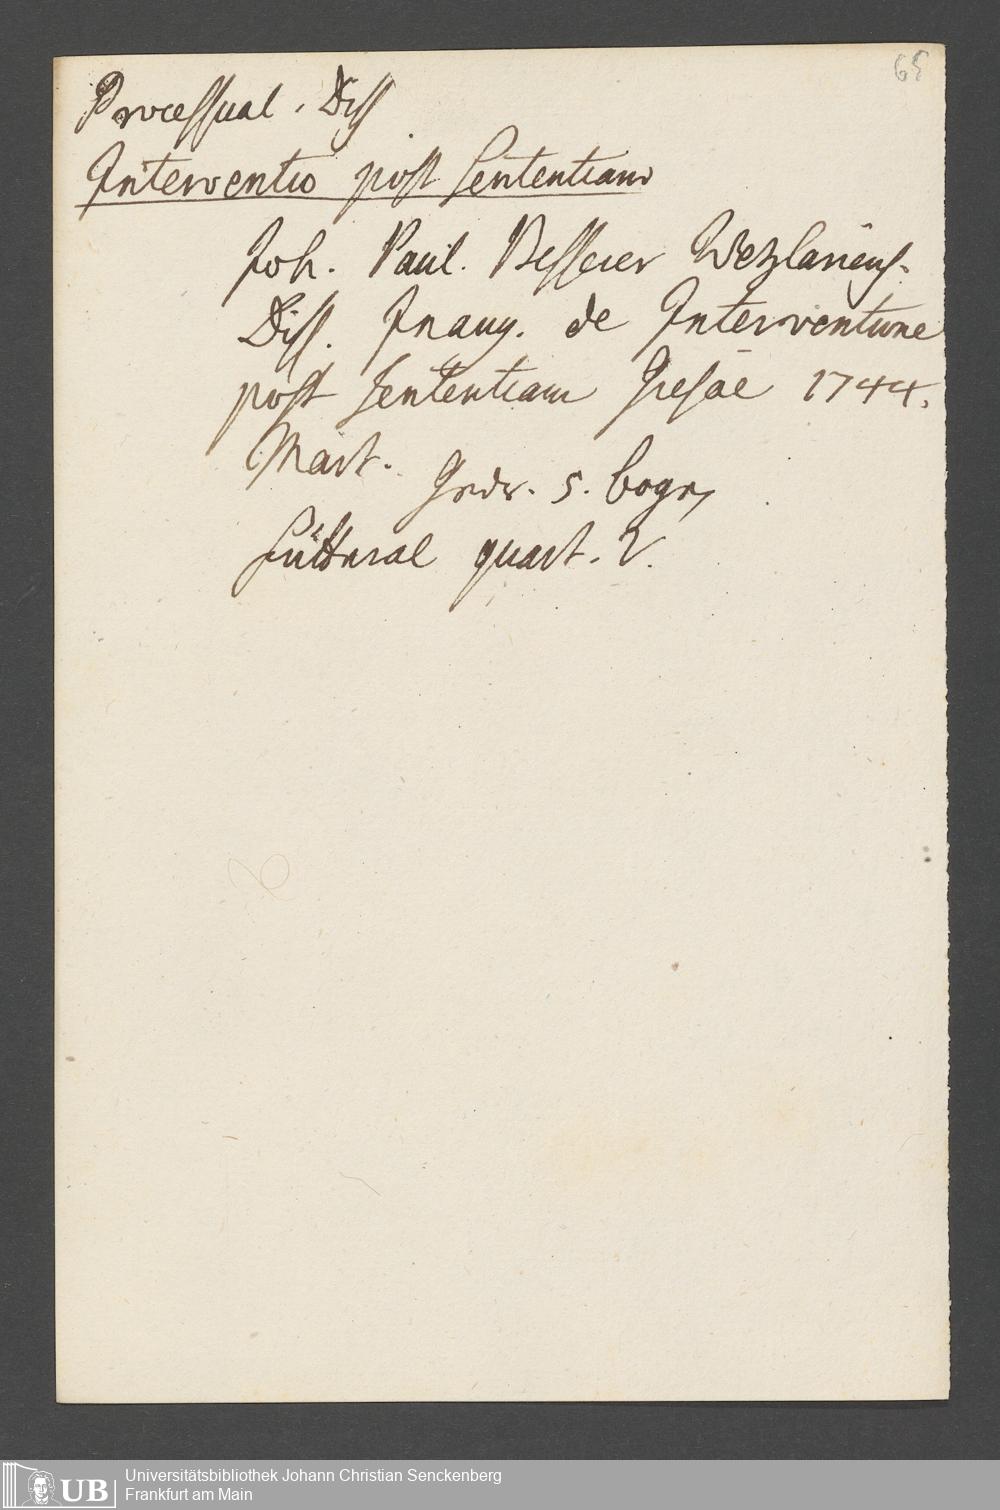 65
Processual. Diss
Interventio post Sententiam
Joh. Paul. Besserer Wetzlariens.
Diss. Inaug. de Interventione
post Sententiam Giesae 1744.
Mart. 5. bogen
Futteral quart. V.
Universitätsbibliothek Johann Christian Senckenberg
Frankfurt am Main
UB